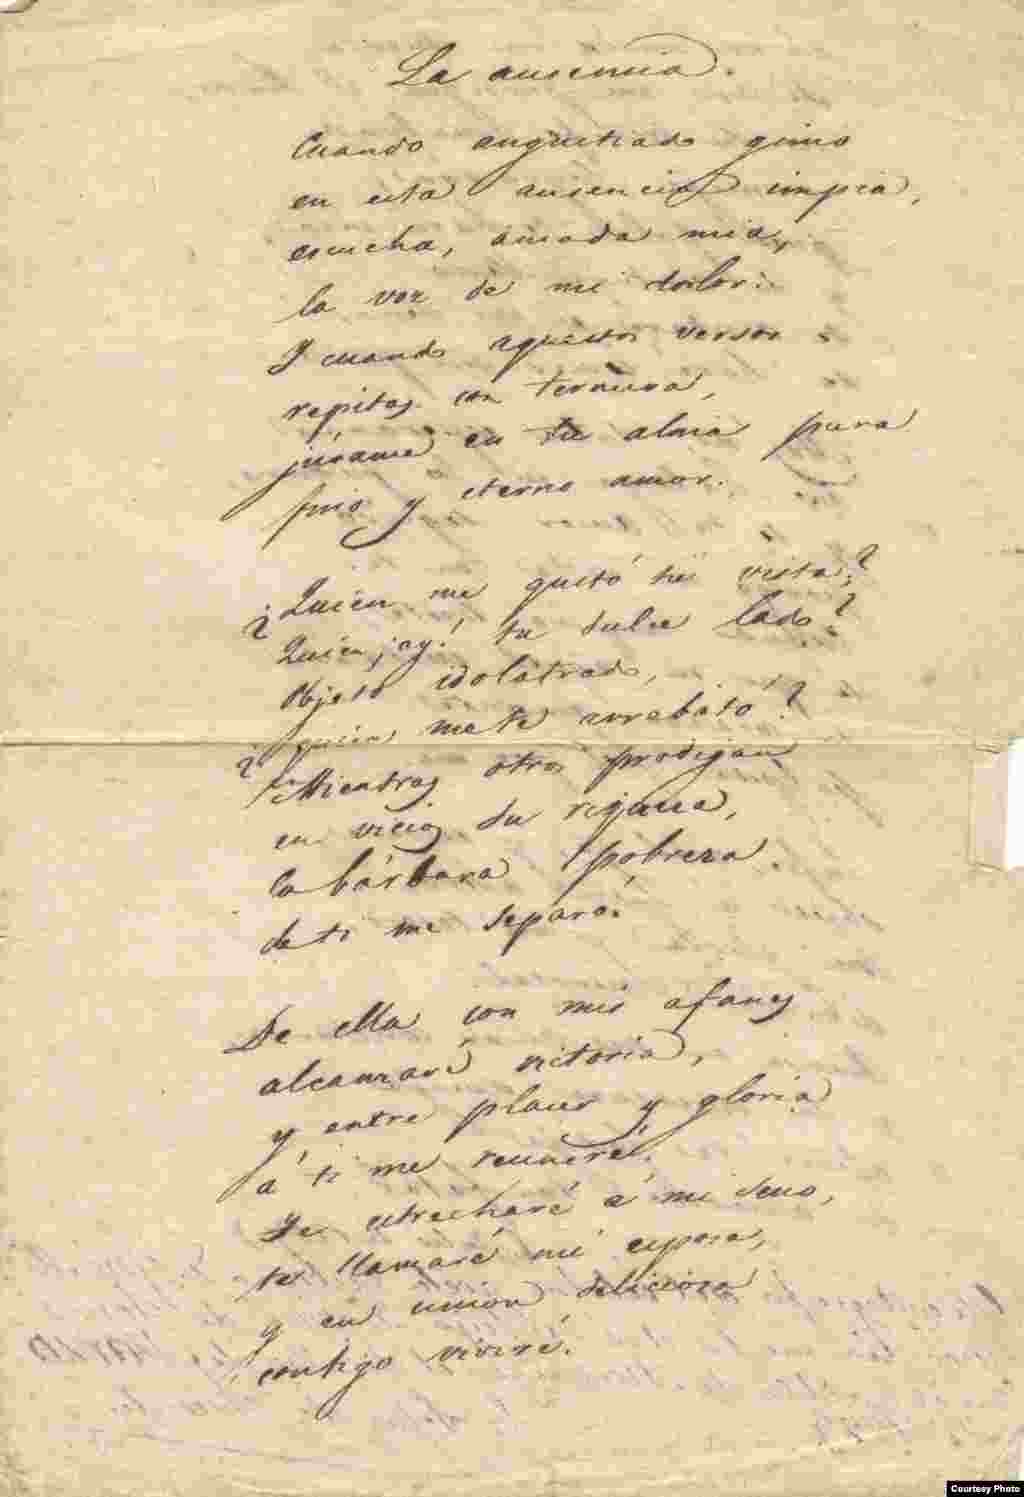 La ausencia.
Cuando angustiado gimo
en esta ausencia impia,
escucha, amada mia,
la voz de mi dolor:
Y cuando aquestos versos
repitas con ternura,
júrame en tu alma pura
fino y eterno amor.
¿Quien me quitó tu vista?
Quien ¡ay! tu dulce lado?
Objeto idolatrado,
¿quien me te arrebató?
Mientras otros prodigan
en vicios su riqueza,
la bárbara pobreza
de ti me separó.
De ella con mis afanes
alcanzaré victoria,
y entre placer y gloria
á ti me reuniré.
Te estrecharé á mi seno,
te llamaré mi esposa,
y en union deliciosa
contigo viviré.
Courtesy Photo